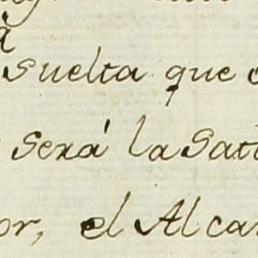 suelta que
será la Sat
or, el Alca